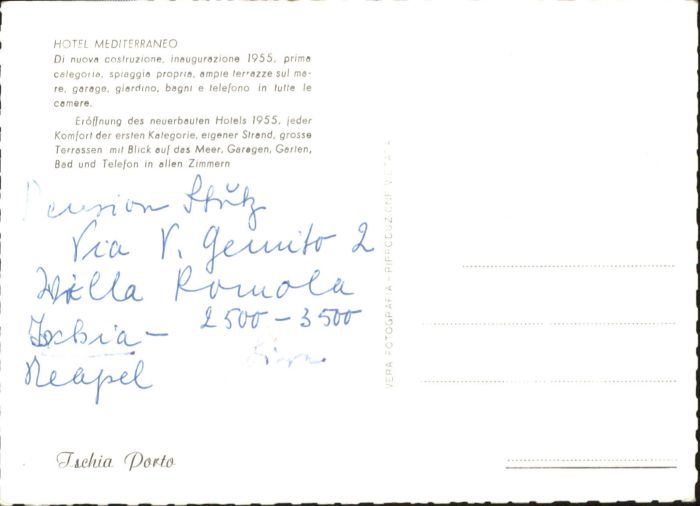 HOTEL MEDITERRANEO
Di nuova costruzione, inaugurazione 1955, prima
categoria, spiaggia propria, ampie terrazze sul ma-
re, garage, giardino, bagni e telefono in tutte le
camere.
Eröffnung des neuerbauten Hotels 1955, jeder
Komfort der ersten Kategorie, eigener Strand, grosse
Terrassen mit Blick auf das Meer, Garagen, Garten,
Bad und Telefon in allen Zimmern
Pension Stütz
Via V. Gemito 2
Villa Romola
Ischia - 2500-3500
Neapel
VERA FOTOGRAFIA - RIPRODUZIONE VIETATA
Ischia Porto